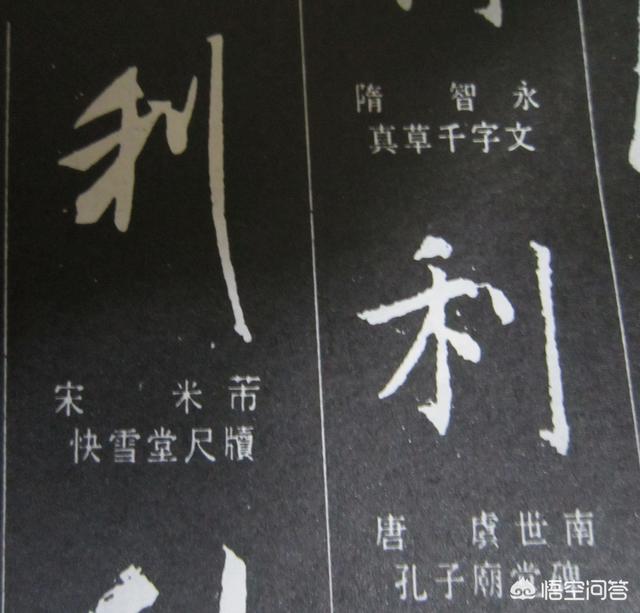 隋 智永
真草千字文
利
唐 虞世南
孔子廟堂碑
利
宋 米芾
快雪堂尺牘
悟空问答